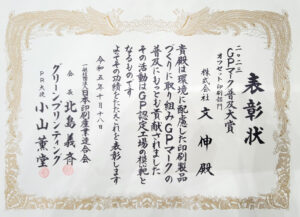 表彰状
二〇二三
GPマーク普及大賞
オフセット印刷部門
株式会社
文伸殿
貴殿は環境に配慮した印刷製品
づくりに取り組みGPマークの
普及にもっとも貢献されました
その活動はGP認定工場の模範と
なるものです
よってその功績をたたえこれを表彰します
令和五年十月十八日
一般社団法人日本印刷産業連合会
会長 北島義斉
グリーンプリンティング
PR大使 小山薫堂